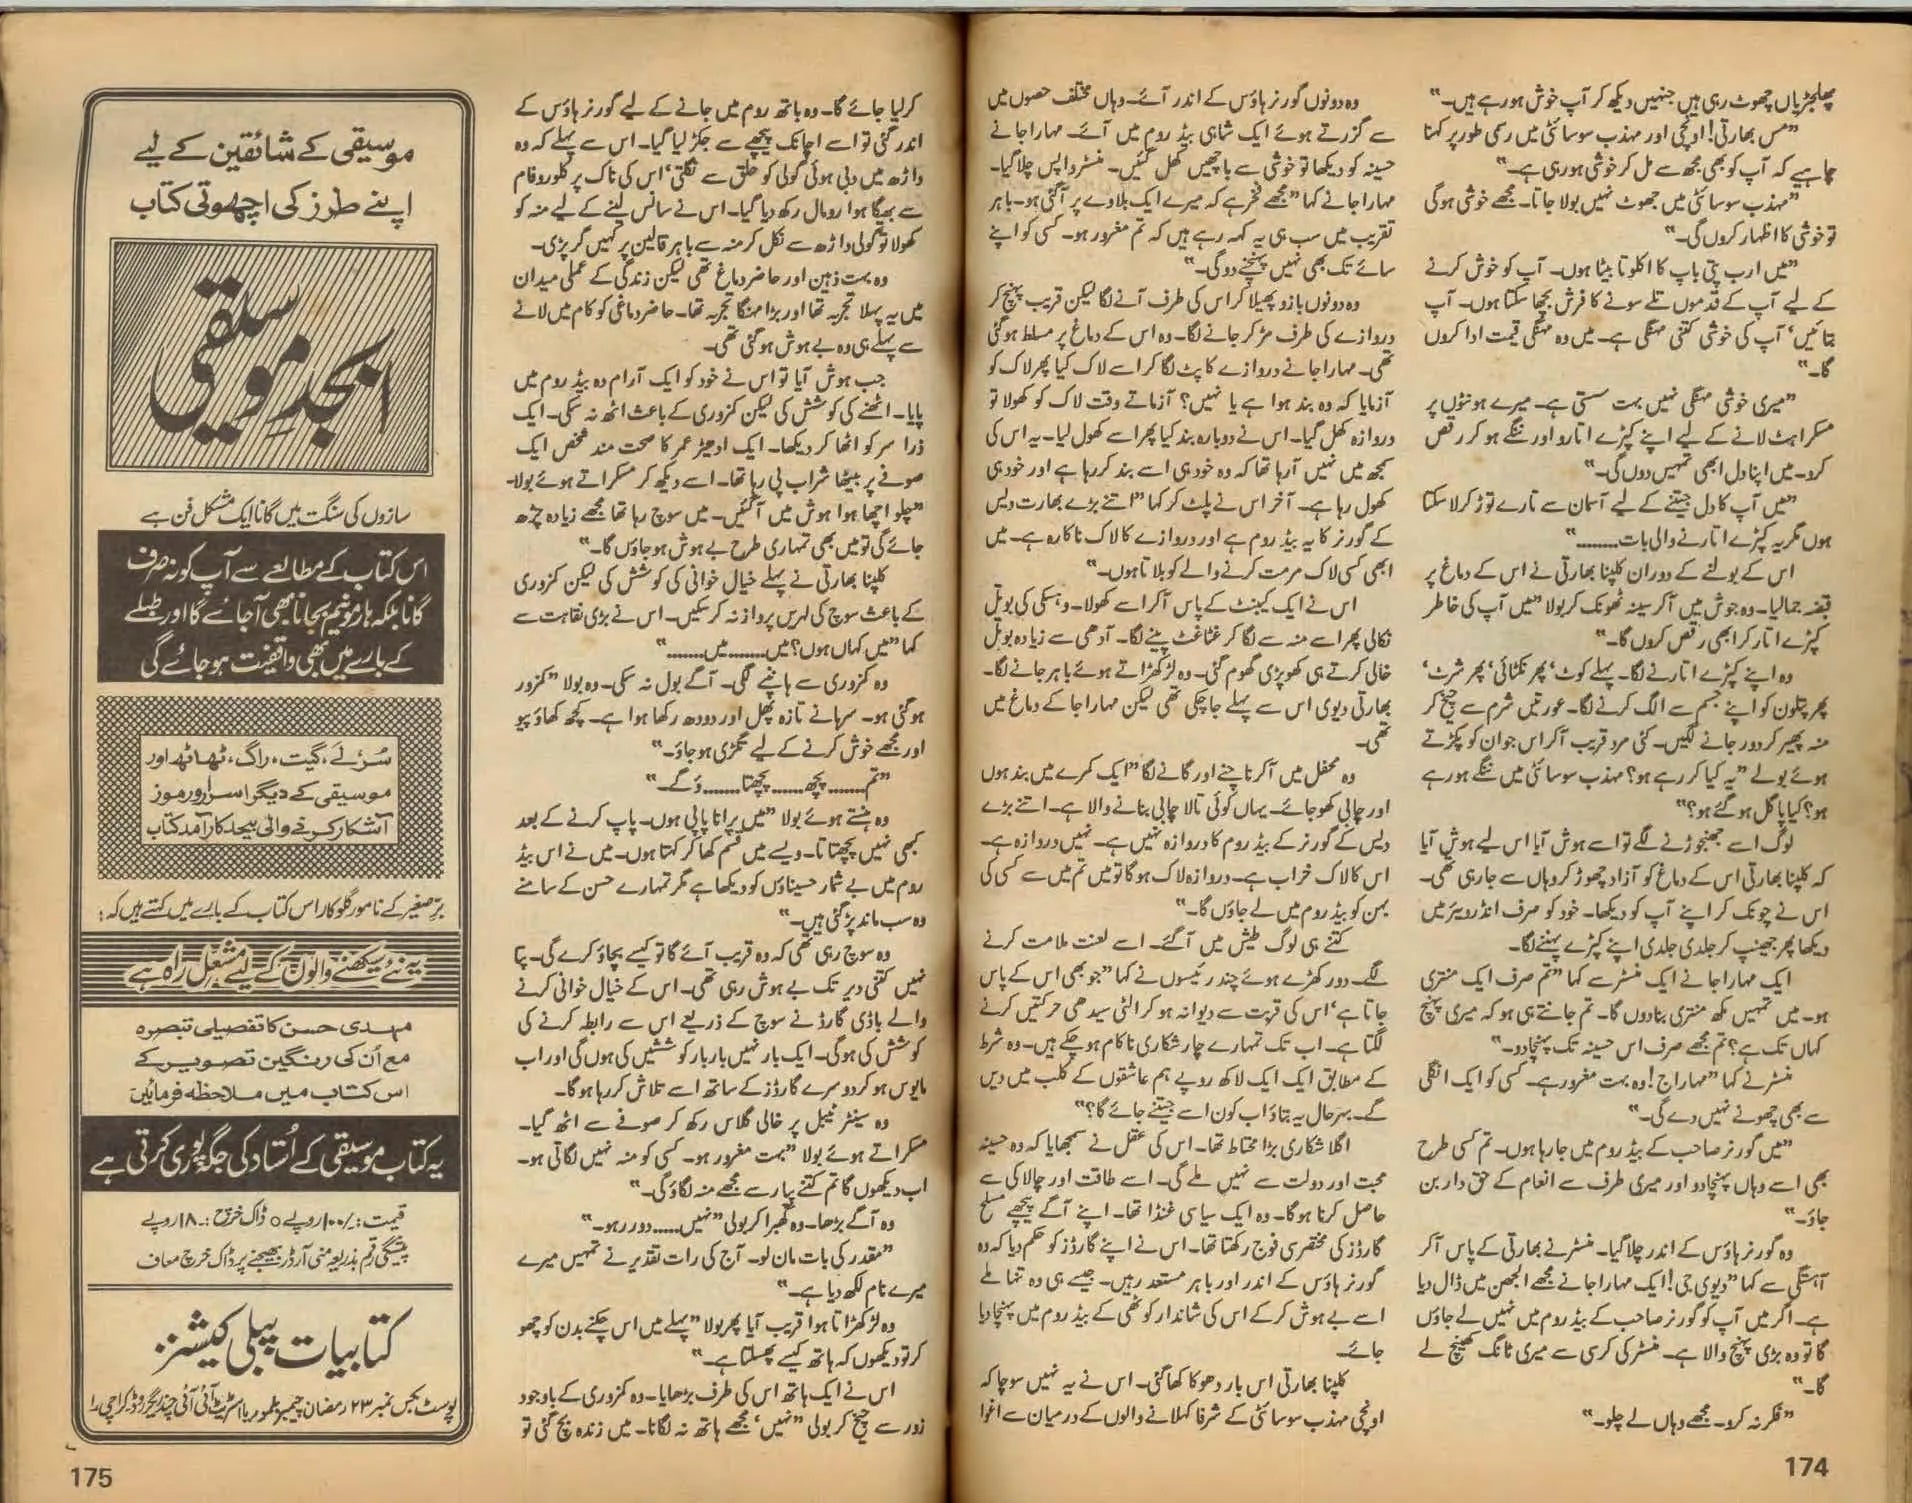 پھلجڑیاں چھوٹ رہی ہیں جنہیں دیکھ کر آپ خوش ہو رہے ہیں۔"
"مس بھارتی! اونچی اور مہذب سوسائٹی میں رسمی طور پر کہنا
چاہیے کہ آپ کو بھی مجھ سے مل کر خوشی ہو رہی ہے۔"
"مہذب سوسائٹی میں جھوٹ نہیں بولا جاتا۔ مجھے خوشی ہوگی
تو خوشی کا اظہار کروں گی۔"
"میں ارب پتی باپ کا اکلوتا بیٹا ہوں۔ آپ کو خوش کرنے
کے لیے آپ کے قدموں تلے سونے کا فرش بچھا سکتا ہوں۔ آپ
بتائیں' آپ کی خوشی کتنی مہنگی ہے۔ میں وہ مہنگی قیمت ادا کروں
گا۔"
"میری خوشی مہنگی نہیں بہت سستی ہے۔ میرے ہونٹوں پر
مسکراہٹ لانے کے لیے اپنے کپڑے اتارو اور ننگے ہو کر رقص
کرو۔ میں اپنا دل ابھی تمہیں دوں گی۔"
"میں آپ کا دل جیتنے کے لیے آسمان سے تارے توڑ کر لا سکتا
ہوں مگر یہ کپڑے اتارنے والی بات......."
اس کے بولنے کے دوران کلپنا بھارتی نے اس کے دماغ پر
قبضہ جمالیا۔ وہ جوش میں آکر سینہ ٹھونک کر بولا "میں آپ کی خاطر
کپڑے اتار کر ابھی رقص کروں گا۔"
وہ اپنے کپڑے اتارنے لگا۔ پہلے کوٹ' پھر نکٹائی' پھر شرٹ'
پھر پتلون کو اپنے جسم سے الگ کرنے لگا۔ عورتیں شرم سے چیخ کر
منہ پھیر کر دور جانے لگیں۔ کئی مرد قریب آکر اس جوان کو پکڑتے
ہوئے بولے "یہ کیا کر رہے ہو؟ مہذب سوسائٹی میں ننگے ہو رہے
ہو؟ کیا پاگل ہو گئے ہو؟"
لوگ اسے جھنجوڑنے لگے تو اسے ہوش آیا اس لیے ہوش آیا
کہ کلپنا بھارتی اس کے دماغ کو آزاد چھوڑ کر وہاں سے جا رہی تھی۔
اس نے چونک کر اپنے آپ کو دیکھا۔ خود کو صرف انڈرویئر میں
دیکھا پھر جھینپ کر جلدی جلدی اپنے کپڑے پہننے لگا۔
ایک مہاراجا نے ایک منسٹر سے کہا "تم صرف ایک منتری
ہو۔ میں تمہیں مکھ منتری بنادوں گا۔ تم جانتے ہی ہو کہ میری پہنچ
کہاں تک ہے؟ تم مجھے صرف اس حسینہ تک پہنچادو۔"
منسٹر نے کہا "مہاراج! وہ بہت مغرور ہے۔ کسی کو ایک انگلی
سے بھی چھونے نہیں دے گی۔"
"میں گورنر صاحب کے بیڈ روم میں جا رہا ہوں۔ تم کسی طرح
بھی اسے وہاں پہنچادو اور میری طرف سے انعام کے حق دار بن
جاؤ۔"
وہ گورنر ہاؤس کے اندر چلا گیا۔ منسٹر نے بھارتی کے پاس آکر
آہستگی سے کہا "دیوی جی! ایک مہاراجا نے مجھے الجھن میں ڈال دیا
ہے۔ اگر میں آپ کو گورنر صاحب کے بیڈ روم میں نہیں لے جاؤں
گا تو وہ بڑی پہنچ والا ہے۔ منسٹر کی کرسی سے میری ٹانگ کھینچ لے
گا۔"
"فکر نہ کرو۔ مجھے وہاں لے چلو۔"
174
وہ دونوں گورنر ہاؤس کے اندر آئے۔ وہاں مختلف حصوں میں
سے گزرتے ہوئے ایک شاہی بیڈ روم میں آئے۔ مہاراجا نے
حسینہ کو دیکھا تو خوشی سے باچھیں کھل گئیں۔ منسٹر واپس چلا گیا۔
مہاراجا نے کہا "مجھے فخر ہے کہ میرے ایک بلاوے پر آگئی ہو۔ باہر
تقریب میں سب ہی یہ کہہ رہے ہیں کہ تم مغرور ہو۔ کسی کو اپنے
سائے تک بھی نہیں پہنچنے دوگی۔"
وہ دونوں بازو پھیلا کر اس کی طرف آنے لگا لیکن قریب پہنچ کر
دروازے کی طرف مڑ کر جانے لگا۔ وہ اس کے دماغ پر مسلط ہوگئی
تھی۔ مہاراجا نے دروازے کا پٹ لگا کر اسے لاک کیا پھر لاک کو
آزمایا کہ وہ بند ہوا ہے یا نہیں؟ آزماتے وقت لاک کو کھولا تو
دروازہ کھل گیا۔ اس نے دوبارہ بند کیا پھر اسے کھول لیا۔ یہ اس کی
سمجھ میں نہیں آرہا تھا کہ وہ خود ہی اسے بند کر رہا ہے اور خود ہی
کھول رہا ہے۔ آخر اس نے پلٹ کر کہا "اتنے بڑے بھارت دیس
کے گورنر کا یہ بیڈ روم ہے اور دروازے کا لاک ناکارہ ہے۔ میں
ابھی کسی لاک مرمت کرنے والے کو بلاتا ہوں۔"
اس نے ایک کیبنٹ کے پاس آکر اسے کھولا۔ وہسکی کی بوتل
نکالی پھر اسے منہ سے لگا کر غٹاغٹ پینے لگا۔ آدھی سے زیادہ بوتل
خالی کرتے ہی کھوپڑی گھوم گئی۔ وہ لڑکھڑاتے ہوئے باہر جانے لگا۔
بھارتی دیوی اس سے پہلے جاچکی تھی لیکن مہاراجا کے دماغ میں
تھی۔
وہ محفل میں آکر ناچنے اور گانے لگا "ایک کمرے میں بند ہوں
اور چابی کھو جائے۔ یہاں کوئی تالا چابی بنانے والا ہے۔ اتنے بڑے
دیس کے گورنر کے بیڈ روم کا دروازہ نہیں ہے۔ نہیں دروازہ ہے۔
اس کا لاک خراب ہے۔ دروازہ لاک ہوگا تو میں تم میں سے کسی کی
بہن کو بیڈ روم میں لے جاؤں گا۔"
کتنے ہی لوگ طیش میں آگئے۔ اسے لعنت ملامت کرنے
لگے۔ دور کھڑے ہوئے چند رئیسوں نے کہا "جو بھی اس کے پاس
جاتا ہے' اس کی قربت سے دیوانہ ہو کر الٹی سیدھی حرکتیں کرنے
لگتا ہے۔ اب تک تمہارے چار شکاری ناکام ہوچکے ہیں۔ وہ شرط
کے مطابق ایک ایک لاکھ روپے ہم عاشقوں کے کلب میں دیں
گے۔ بہرحال یہ بتاؤ اب کون اسے جیتنے جائے گا؟"
اگلا شکاری بڑا محتاط تھا۔ اس کی عقل نے سمجھایا کہ وہ حسینہ
محبت اور دولت سے نہیں ملے گی۔ اسے طاقت اور چالاکی سے
حاصل کرنا ہوگا۔ وہ ایک سیاسی غنڈا تھا۔ اپنے آگے پیچھے مسلح
گارڈز کی مختصری فوج رکھتا تھا۔ اس نے اپنے گارڈز کو حکم دیا کہ وہ
گورنر ہاؤس کے اندر اور باہر مستعد رہیں۔ جیسے ہی وہ تنہا ملے
اسے بے ہوش کر کے اس کی شاندار کوٹھی کے بیڈ روم میں پہنچادیا
جائے۔
کلپنا بھارتی اس بار دھوکا کھا گئی۔ اس نے یہ نہیں سوچا کہ
اونچی مہذب سوسائٹی کے شرفا کہلانے والوں کے درمیان سے اغوا
کرلیا جائے گا۔ وہ باتھ روم میں جانے کے لیے گورنر ہاؤس کے
اندر گئی تو اسے اچانک پیچھے سے جکڑ لیا گیا۔ اس سے پہلے کہ وہ
داڑھ میں دبی ہوئی گولی کو حلق سے نگلتی' اس کی ناک پر کلوروفام
سے بھیگا ہوا رومال رکھ دیا گیا۔ اس نے سانس لینے کے لیے منہ کو
کھولا تو گولی داڑھ سے نکل کر منہ سے باہر قالین پر کہیں گر پڑی۔
وہ بہت ذہین اور حاضر دماغ تھی لیکن زندگی کے عملی میدان
میں یہ پہلا تجربہ تھا اور بڑا مہنگا تجربہ تھا۔ حاضر دماغی کو کام میں لانے
سے پہلے ہی وہ بے ہوش ہو گئی تھی۔
جب ہوش آیا تو اس نے خود کو ایک آرام دہ بیڈ روم میں
پایا۔ اٹھنے کی کوشش کی لیکن کمزوری کے باعث اٹھ نہ سکی۔ ایک
ذرا سر کو اٹھا کر دیکھا۔ ایک ادھیڑ عمر کا صحت مند شخص ایک
صوفے پر بیٹھا شراب پی رہا تھا۔ اسے دیکھ کر مسکراتے ہوئے بولا۔
"چلو اچھا ہوا ہوش میں آگئیں۔ میں سوچ رہا تھا مجھے زیادہ چڑھ
جائے گی تو میں بھی تمہاری طرح بے ہوش ہو جاؤں گا۔"
کلپنا بھارتی نے پہلے خیال خوانی کی کوشش کی لیکن کمزوری
کے باعث سوچ کی لہریں پرواز نہ کر سکیں۔ اس نے بڑی نقاہت سے
کہا "میں کہاں ہوں؟ میں....... میں......."
وہ کمزوری سے ہانپنے لگی۔ آگے بول نہ سکی۔ وہ بولا "کمزور
ہوگئی ہو۔ سرہانے تازہ پھل اور دودھ رکھا ہوا ہے۔ کچھ کھاؤ پیو
اور مجھے خوش کرنے کے لیے تگڑی ہو جاؤ۔"
"تم....... پچھ...... پچھتا....... ؤ گے۔"
وہ ہنستے ہوئے بولا "میں پرانا پاپی ہوں۔ پاپ کرنے کے بعد
کبھی نہیں پچھتاتا۔ ویسے میں قسم کھا کر کہتا ہوں۔ میں نے اس بیڈ
روم میں بے شمار حسیناؤں کو دیکھا ہے مگر تمہارے حسن کے سامنے
وہ سب ماند پڑ گئی ہیں۔"
وہ سوچ رہی تھی کہ وہ قریب آئے گا تو کیسے بچاؤ کرے گی۔ پتا
نہیں کتنی دیر تک بے ہوش رہی تھی۔ اس کے خیال خوانی کرنے
والے باڈی گارڈ نے سوچ کے ذریعے اس سے رابطہ کرنے کی
کوشش کی ہوگی۔ ایک بار نہیں بار بار کوششیں کی ہوں گی اور اب
مایوس ہو کر دوسرے گارڈز کے ساتھ اسے تلاش کر رہا ہوگا۔
وہ سینٹر ٹیبل پر خالی گلاس رکھ کر صوفے سے اٹھ گیا۔
مسکراتے ہوئے بولا "بہت مغرور ہو۔ کسی کو منہ نہیں لگاتی ہو۔
اب دیکھوں گا تم کتنے پیار سے مجھے منہ لگاؤ گی۔"
وہ آگے بڑھا۔ وہ گھبرا کر بولی "نہیں..... دور رہو۔"
"مقدر کی بات مان لو۔ آج کی رات تقدیر نے تمہیں میرے
میرے نام لکھ دیا ہے۔"
وہ لڑکھڑاتا ہوا قریب آیا پھر بولا "پہلے میں اس چکنے بدن کو چھو
کر تو دیکھوں کہ ہاتھ کیسے پھسلتا ہے۔"
اس نے ایک ہاتھ اس کی طرف بڑھایا۔ وہ کمزوری کے باوجود
زور سے چیخ کر بولی "نہیں' مجھے ہاتھ نہ لگانا۔ میں زندہ بچ گئی تو
موسیقی کے شائقین کے لیے
اپنے طرز کی اچھوتی کتاب
ابجدِ موسیقی
سازوں کی سنگت میں گانا ایک مشکل فن ہے
اس کتاب کے مطالعے سے آپ کو نہ صرف
گانا بلکہ ہارمونیم بجانا بھی آجائے گا اور طبلے
کے بارے میں بھی واقفیت ہو جائے گی
سُر، لَے، گیت، راگ، ٹھاٹھ اور
موسیقی کے دیگر اسرار و رموز
آشکار کرنے والی بیحد کارآمد کتاب
برّصغیر کے نامور گلوکار اس کتاب کے بارے میں کہتے ہیں کہ:
یہ نئے سیکھنے والوں کے لیے مشعلِ راہ ہے
مہدی حسن کا تفصیلی تبصرہ
مع اُن کی رنگین تصویر کے
اس کتاب میں ملاحظہ فرمائیں
یہ کتاب موسیقی کے اُستاد کی جگہ پوری کرتی ہے
قیمت: ۱۰۰/۔ روپے ○ ڈاک خرچ: ۱۸۔ روپے
پیشگی رقم بذریعہ منی آرڈر بھیجنے پر ڈاک خرچ معاف
کتابیات پبلی کیشنز
پوسٹ بکس نمبر ۲۳ رمضان چیمبرز بلموریا اسٹریٹ آئی آئی چندریگر روڈ کراچی ۱
175